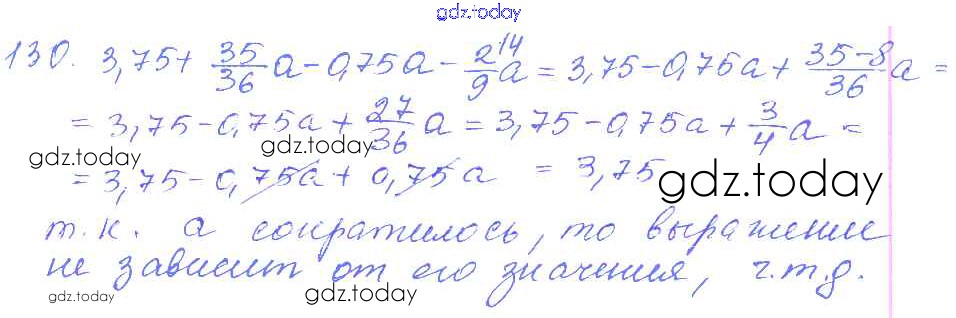 gdz.today
130. 3,75 + 35/36 a - 0,75a - 2^{\4}/9 a = 3,75 - 0,75a + (35-8)/36 a =
= 3,75 - 0,75a + 27/36 a = 3,75 - 0,75a + 3/4 a =
gdz.today gdz.today
= 3,75 - 0,75a + 0,75a = 3,75
gdz.today
т.к. а сократилось, то выражение
не зависит от его значения, ч.т.д.
gdz.today gdz.today